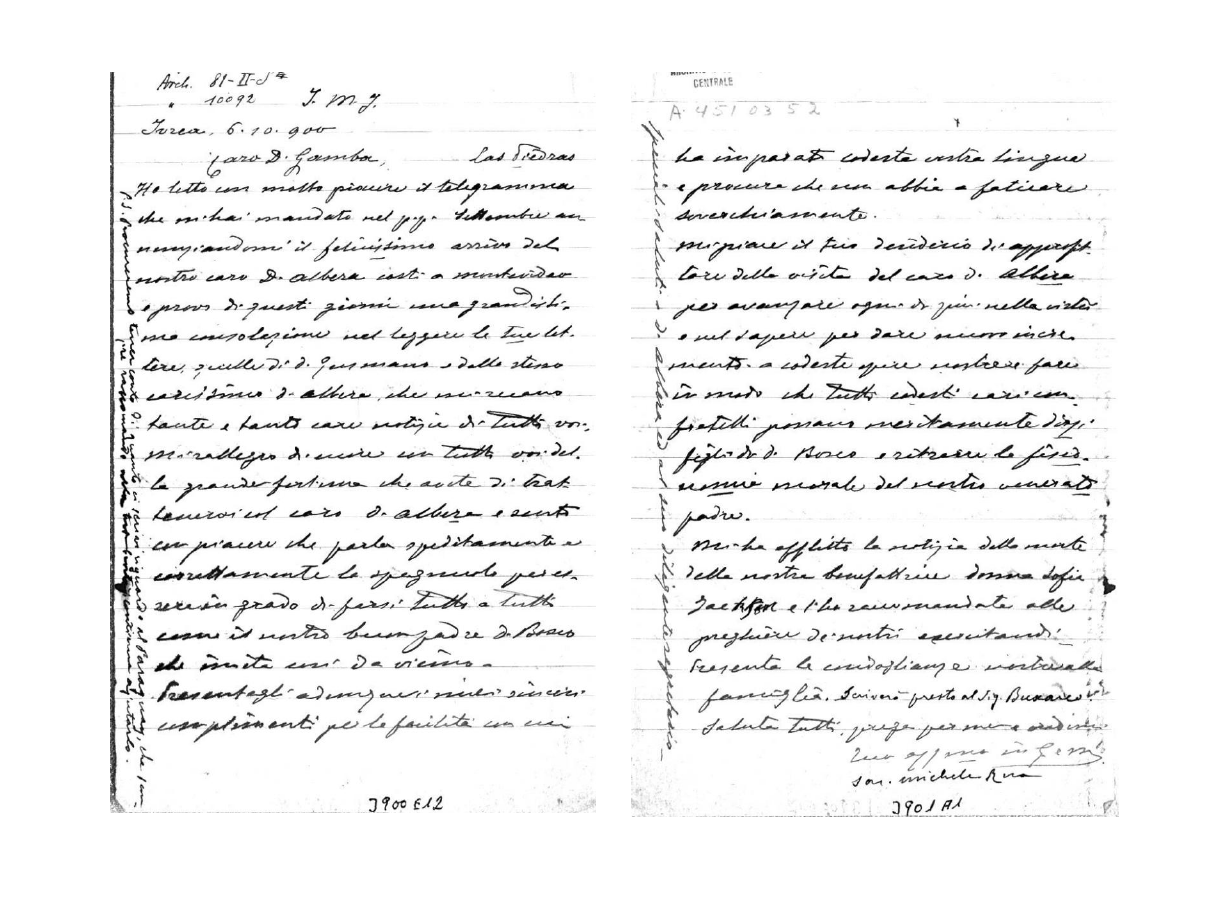 Arch. 81-II-
" 10092 J. M. J.
Ivrea, 6. 10. 900
Caro D. Gamba, Las Piedras
Ho letto con molto piacere il telegramma
che mi hai mandato nel p.p. Settembre an
nunziandomi il felicissimo arrivo del
nostro caro D. Albera costì a Montevideo
e provo di questi giorni una grandissi-
ma consolazione nel leggere le tue let-
tere, quelle di d. Gusmano e dello stesso
carissimo d. Albera, che mi recano
tante e tanto care notizie di tutti voi.
Mi rallegro di cuore con tutti voi del-
la grande fortuna che avete di trat
tenervi col caro D. Albera e sento
con piacere che parla speditamente e
correttamente lo spagnuolo per es-
sere in grado di farsi tutto a tutti
come il nostro buon padre D. Bosco
che imita così da vicino.
Presentagli adunque i miei sinceri
complimenti per la facilità con cui
P.S. Procureremo tener conto di quanto ci scrivi riguardo al Paraguay, che
CENTRALE
A 451 03 52
ha imparato codesta vostra lingua
e procura che non abbia a faticare
soverchiamente.
Mi piace il tuo desiderio di approfit-
tare della visita del caro D. Albera
per avanzare ogni dì più nella virtù
e nel sapere per dare nuovo incre-
mento a codeste opere nostre e fare
in modo che tutti codesti cari con-
fratelli possano meritamente dirsi
figli di D. Bosco e ritrarre la fisio-
nomia morale del nostro venerato
padre.
Mi ha afflitto la notizia della morte
della nostra benefattrice donna Sofia
Jackson e l'ho raccomandata alle
preghiere de' nostri esercitandi.
Presenta le condoglianze nostre alla
famiglia. Scriverò presto al Sig. Buxareo
Saluta tutti, prega per me e credimi
Tuo aff.mo in G. e M.
Sac. Michele Rua
Speciali saluti a D. Albera ed al suo diligente segretario
J900 E12
J901 A1